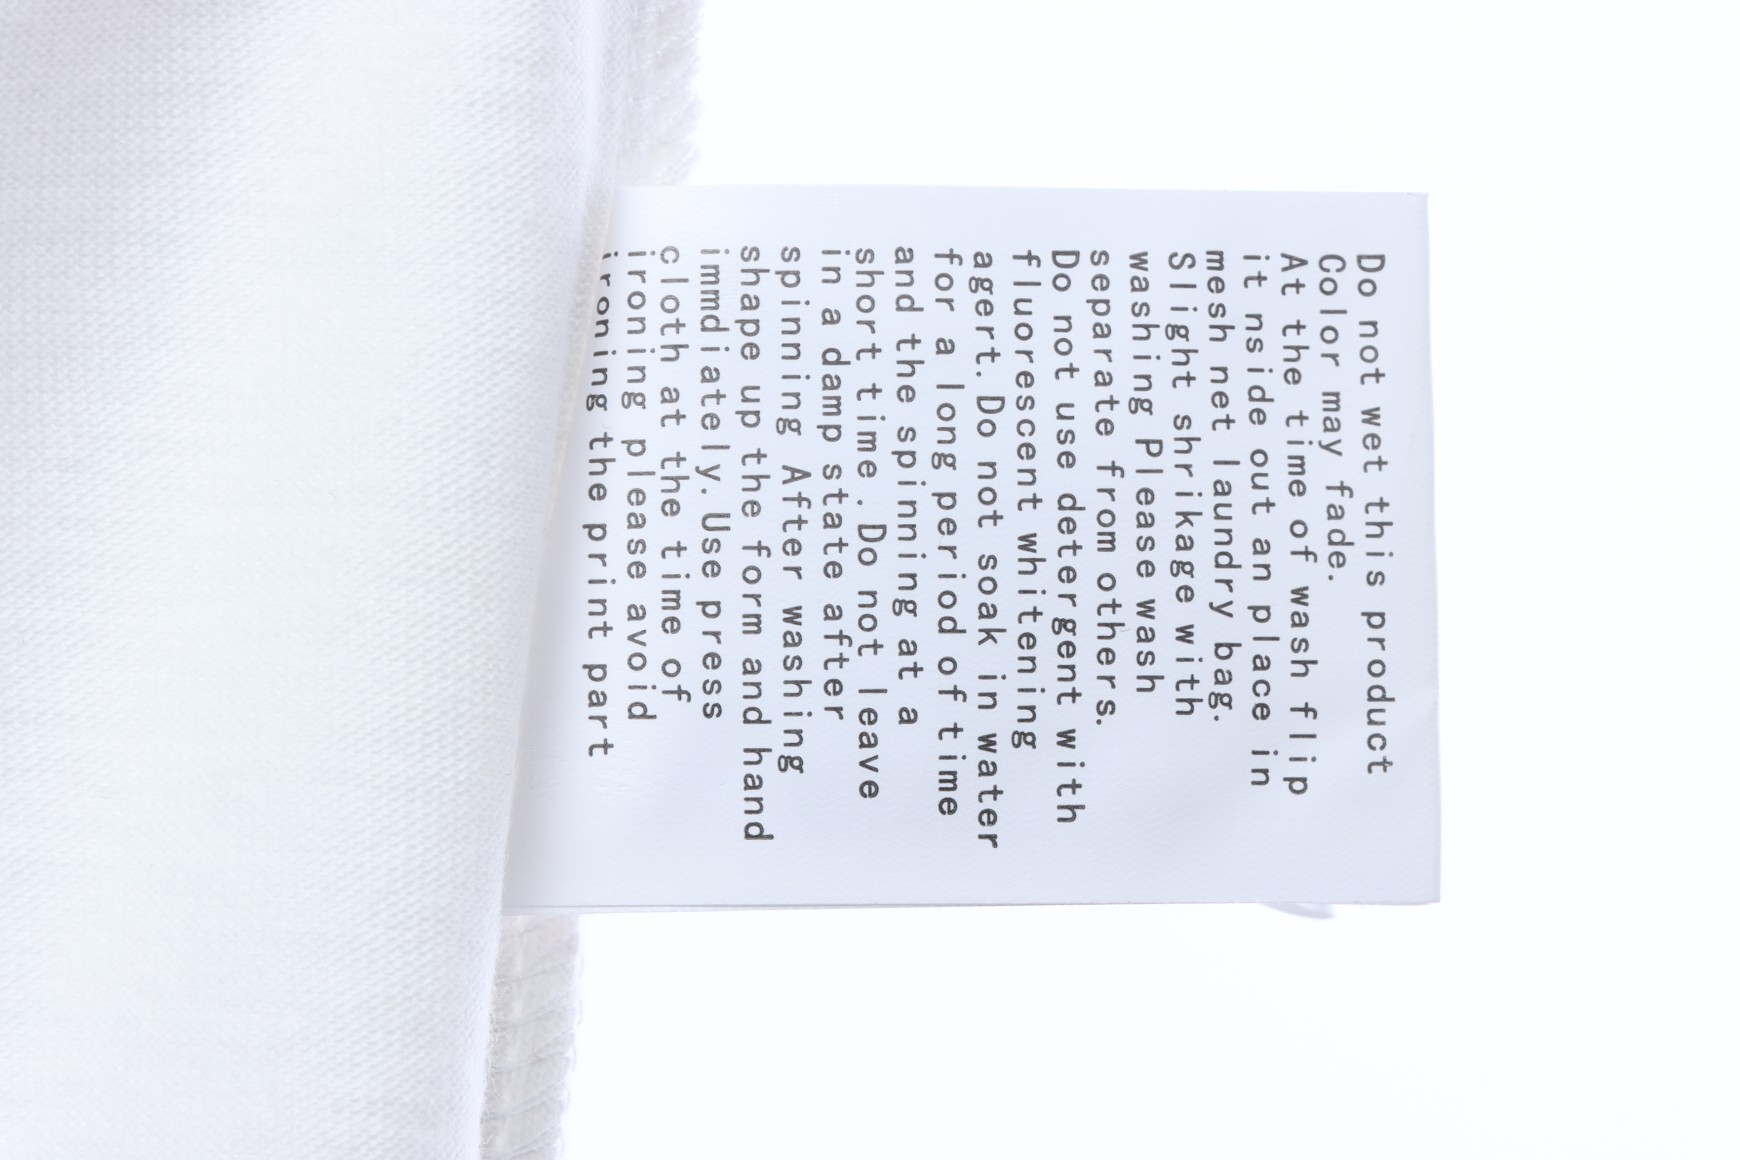 Do not wet this product
Color may fade.
At the time of wash flip
it nside out an place in
mesh net laundry bag.
Slight shrikage with
washing Please wash
separate from others.
Do not use detergent with
fluorescent whitening
agert. Do not soak in water
for a long period of time
and the spinning at a
short time. Do not leave
in a damp state after
spinning After washing
shape up the form and hand
immdiately. Use press
cloth at the time of
ironing please avoid
ironing the print part